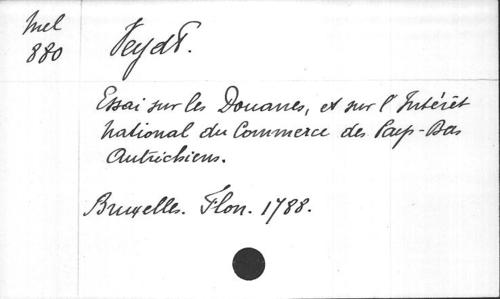 Mel
880
Veydt.
Essai sur les Douanes, et sur l'Intérêt
national du Commerce des Pays-Bas
Autrichiens.
Bruxelles. Flon. 1788.